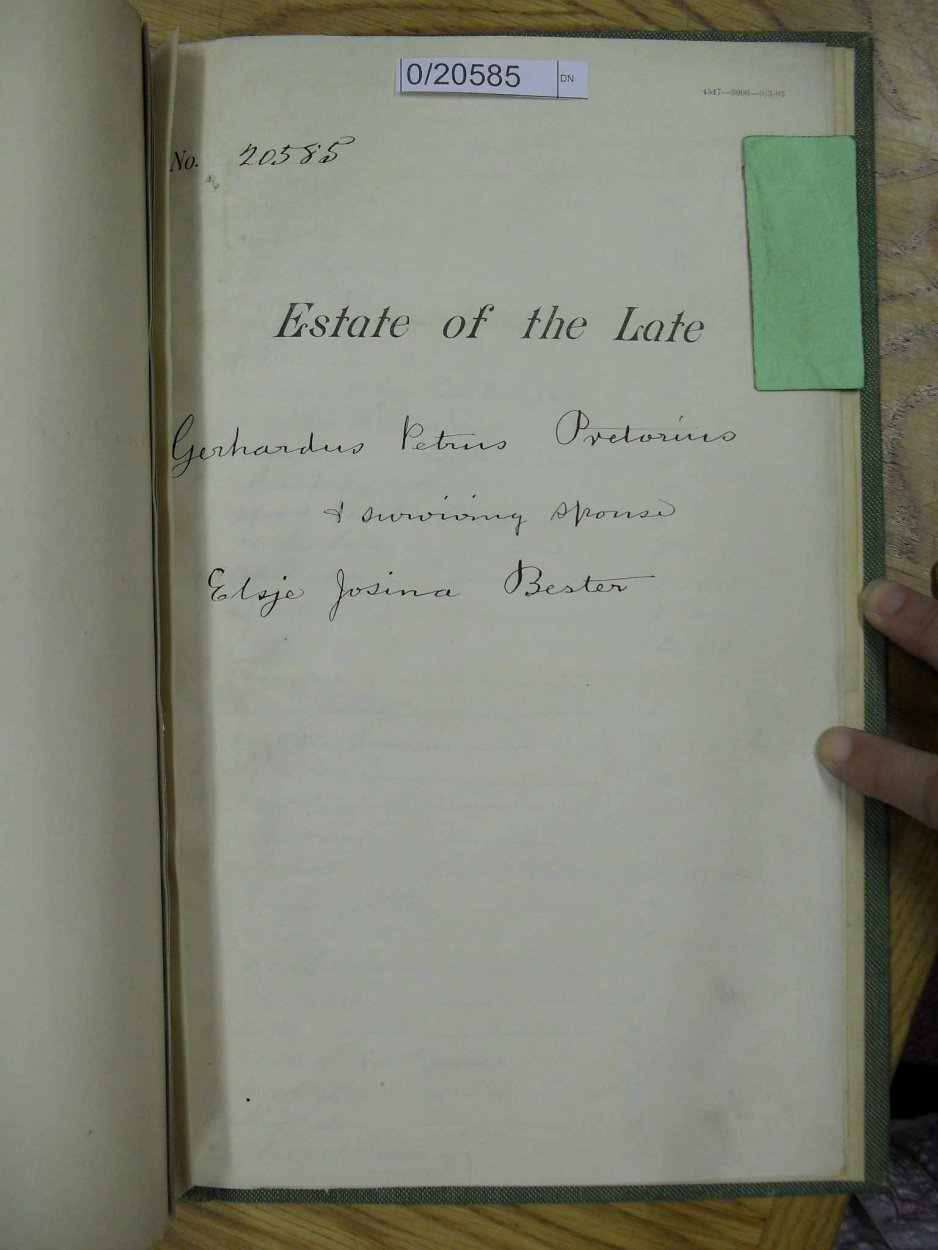 0/20585 DN
4547—3000—9/3/03
No. 20585
Estate of the Late
Gerhardus Petrus Pretorius
& surviving spouse
Elsje Josina Bester